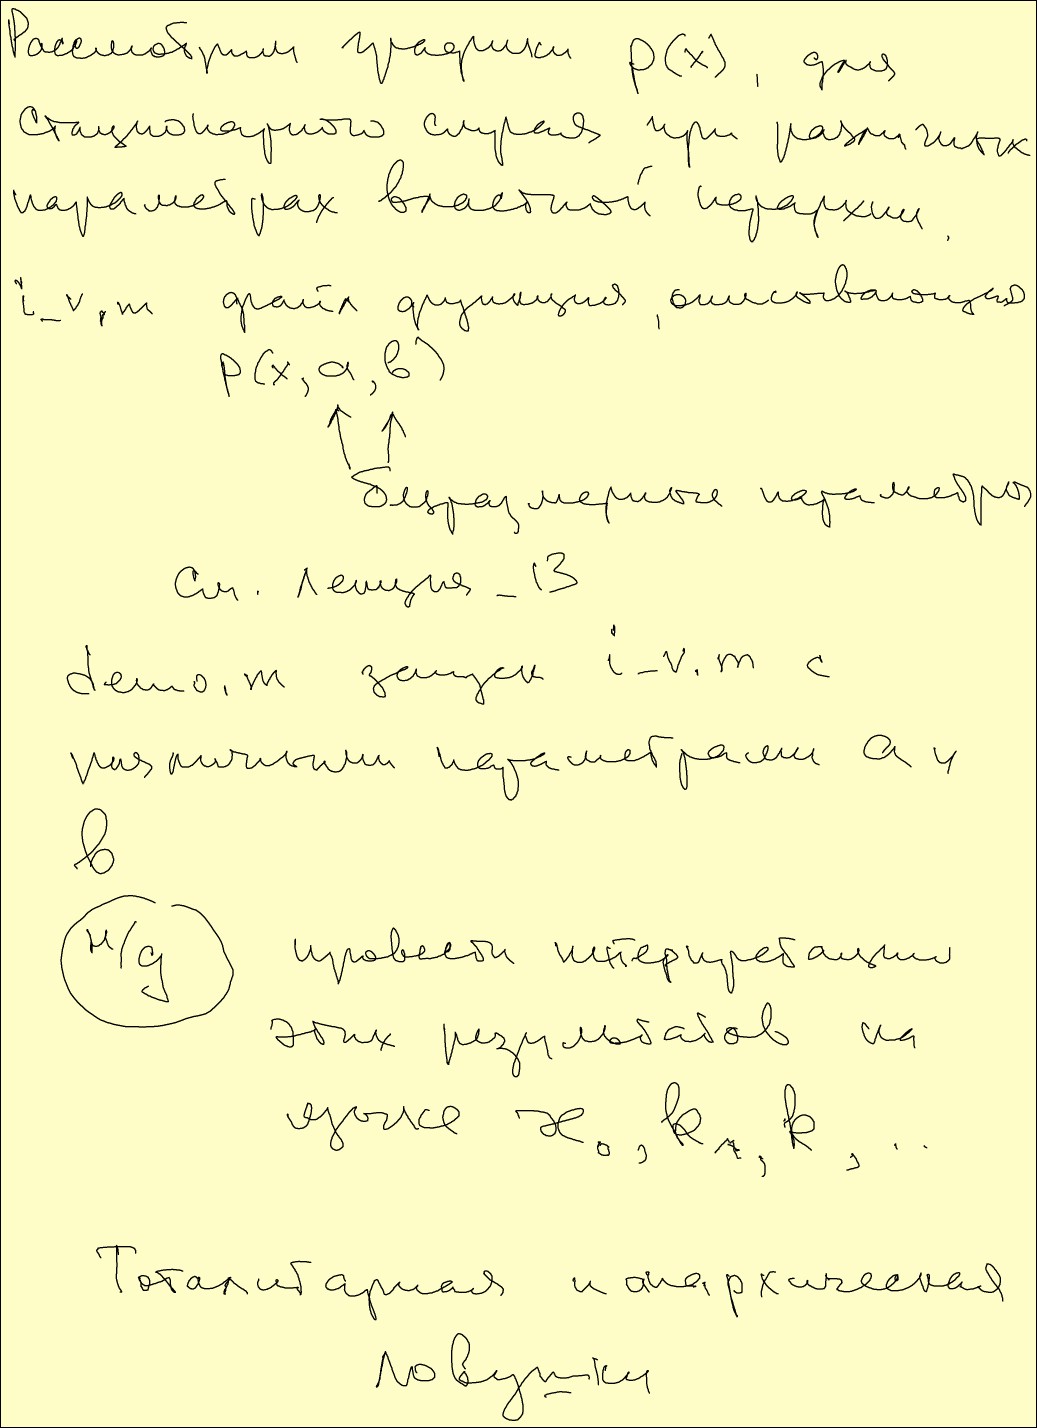 Рассмотрим графики p(x), для
стационарного случая при различных
параметрах властной иерархии.
i_v.m файл функция, описывающая
p(x, a, b)
безразмерные параметры
См. Лекция_13
demo.m запуск i_v.m с
различными параметрами a и
b
н/д провести интерпретацию
этих результатов на
языке æ₀, k₁, k, ..
Тоталитарная и анархическая
ловушки